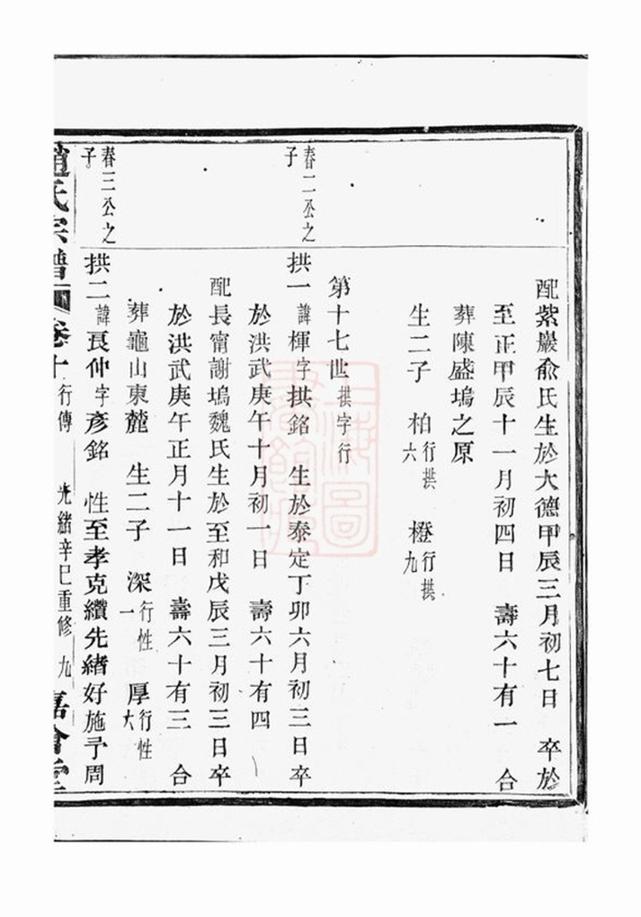 配紫巖俞氏生於大德甲辰三月初七日　卒於
至正甲辰十一月初四日　壽六十有一　合
葬陳盛塢之原
生二子　柏行拱六　橙行拱九
第十七世拱字行
春二公之子
拱一諱楎字拱銘　生於泰定丁卯六月初三日卒
於洪武庚午十月初一日　壽六十有四
配長甯謝塢魏氏生於至和戊辰三月初三日卒
於洪武庚午正月十一日　壽六十有三　合
葬龜山東麓　生二子　深行性一　厚行性大
春三公之子
拱二諱良仲字彥銘　性至孝克纘先緒好施予周
趙氏宗譜　卷十行傳　光緒辛巳重修　九　嘉會堂